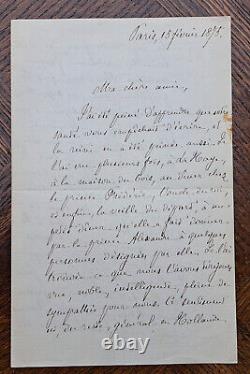 Paris, 15 février 1875.
Ma chère amie,
J'ai été peiné d'apprendre que votre
santé vous empêchait d'écrire, et
la reine en a été privée aussi. Je
l'ai vue plusieurs fois, à la Haye,
à la maison du bois, au dîner chez
le prince Frédéric, l'oncle du roi,
et enfin, la veille du départ, à un
petit dîner qu'elle a fait donner
par le prince Alexandre à quelques
personnes désignées par elle. Je l'ai
trouvée ce que nous l'avons toujours
vue, noble, intelligente, pleine de
sympathie pour nous. Ce sentiment
est, du reste, général en Hollande.